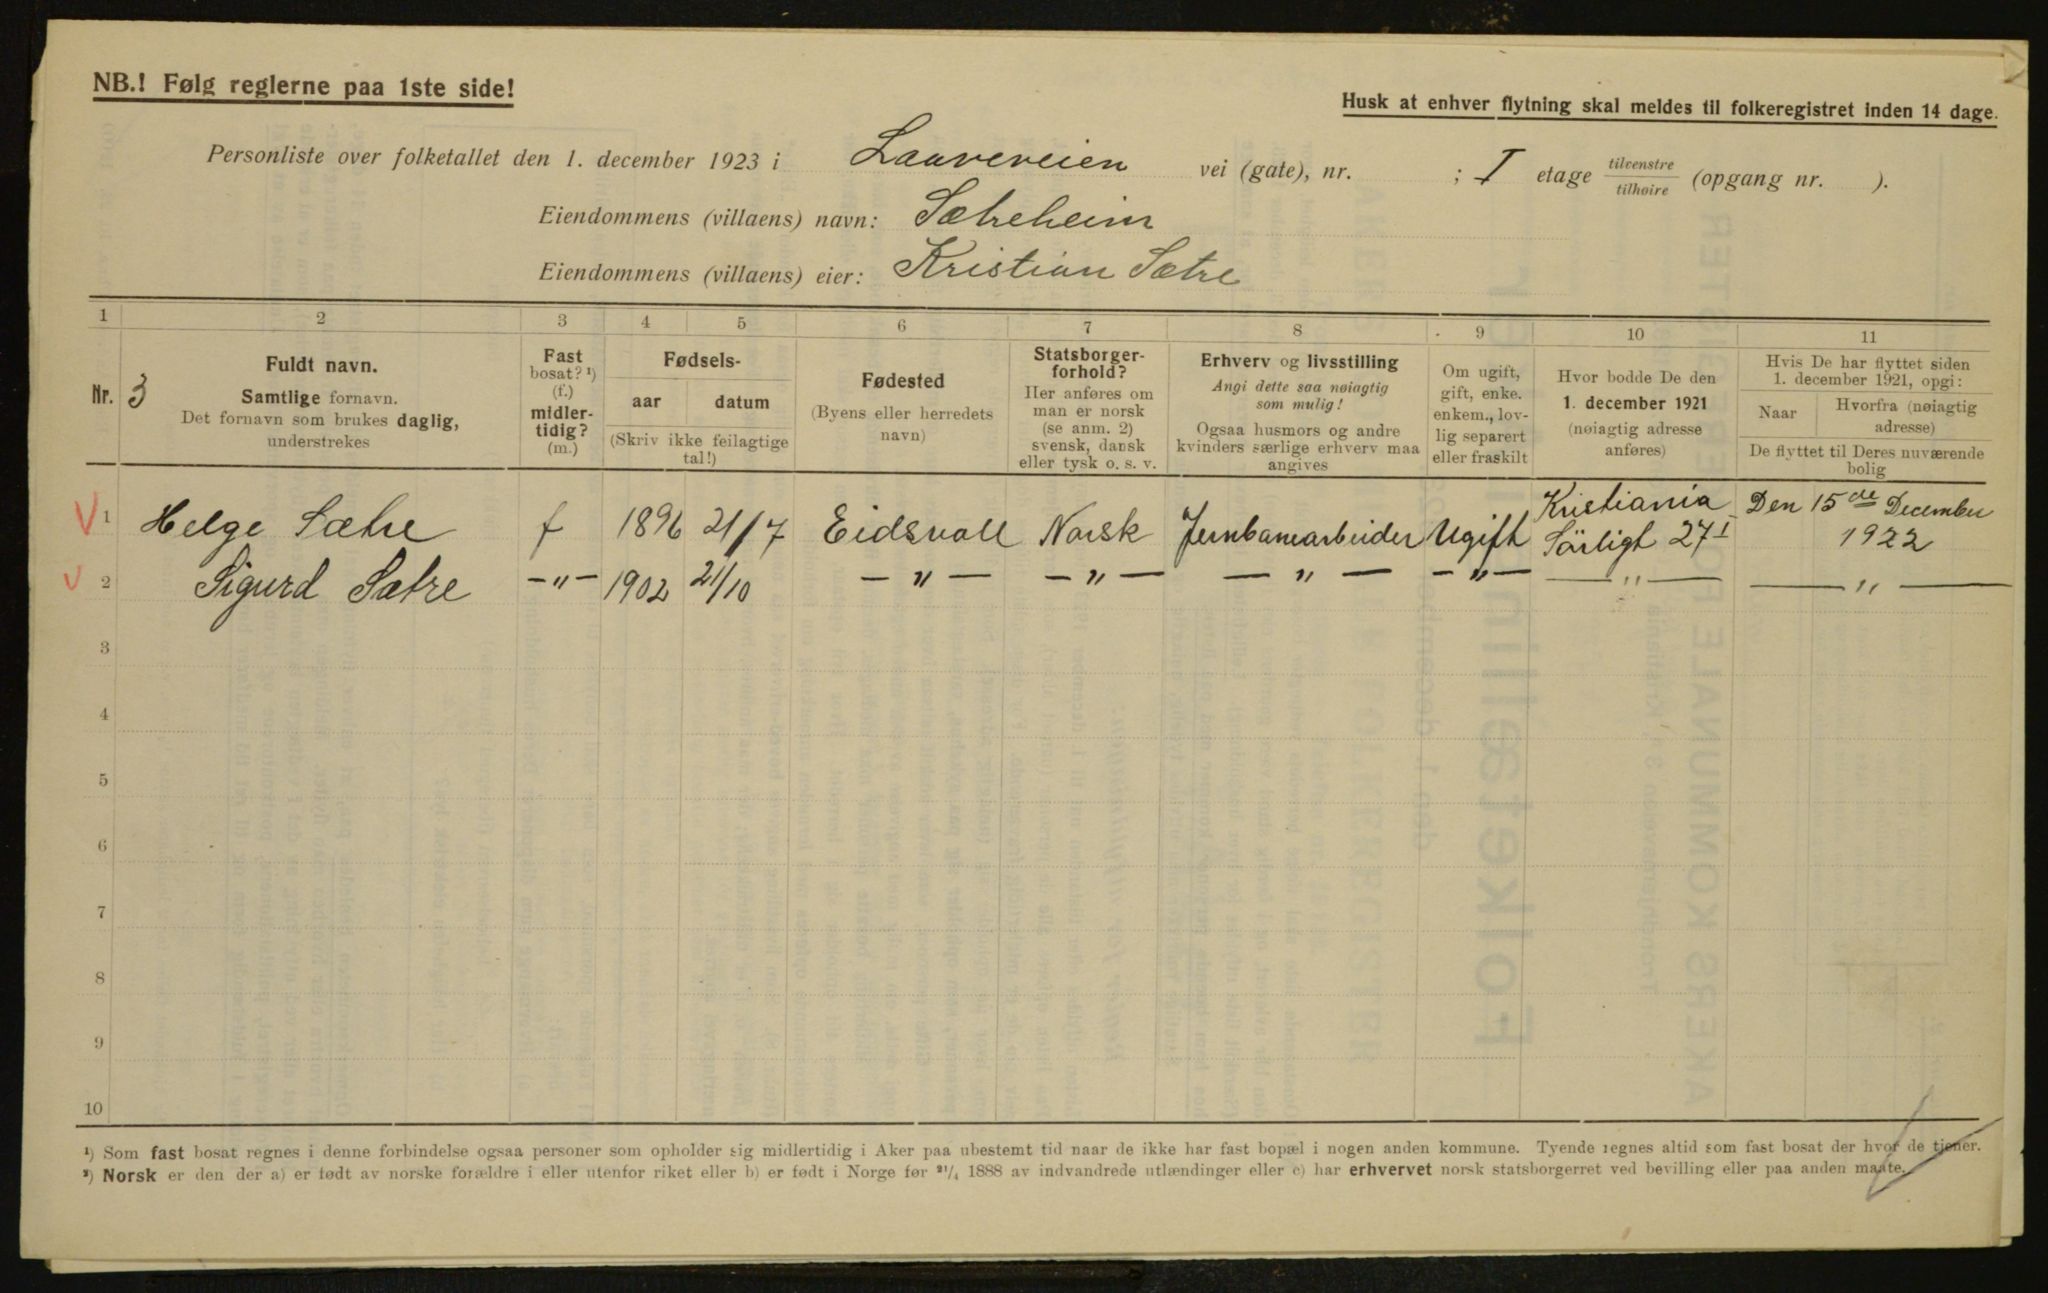 NB.! Følg reglerne paa 1ste side!
Husk at enhver flytning skal meldes til folkeregistret inden 14 dage.
Personliste over folketallet den 1. december 1923 i Laureveien vei (gate), nr. ; I etage tilvenstre / tilhøire (opgang nr. ).
Eiendommens (villaens) navn: Sætreheim
Eiendommens (villaens) eier: Kristian Sætre
1 2 3 4 5 6 7 8 9 10 11
Nr. 3
Fuldt navn.
Samtlige fornavn.
Det fornavn som brukes daglig,
understrekes
Fast
bosat? ¹)
(f.)
midler-
tidig?
(m.)
Fødsels-
aar datum
(Skriv ikke feilagtige
tal!)
Fødested
(Byens eller herredets
navn)
Statsborger-
forhold?
Her anføres om
man er norsk
(se anm. 2)
svensk, dansk
eller tysk o. s. v.
Erhverv og livsstilling
Angi dette saa nøiagtig
som mulig!
Ogsaa husmors og andre
kvinders særlige erhverv maa
angives
Om ugift,
gift, enke.
enkem., lov-
lig separert
eller fraskilt
Hvor bodde De den
1. december 1921
(nøiagtig adresse
anføres)
Hvis De har flyttet siden
1. december 1921, opgi:
Naar
Hvorfra (nøiagtig
adresse)
De flyttet til Deres nuværende
bolig
1 Helge Sætre f 1896 21/7 Eidsvoll Norsk Jernbanearbeider Ugift Kristiania Sörligt 27 I Den 15de December 1922
2 Sigurd Sætre —"— 1902 21/10 —"— —"— —"— —"— —"— —"—
3
4
5
6
7
8
9
10
¹) Som fast bosat regnes i denne forbindelse ogsaa personer som opholder sig midlertidig i Aker paa ubestemt tid naar de ikke har fast bopæl i nogen anden kommune. Tyende regnes altid som fast bosat der hvor de tjener.
²) Norsk er den der a) er født av norske forældre i eller utenfor riket eller b) er født i Norge før ²¹/₄ 1888 av indvandrede utlændinger eller c) har erhvervet norsk statsborgerret ved bevilling eller paa anden maate.